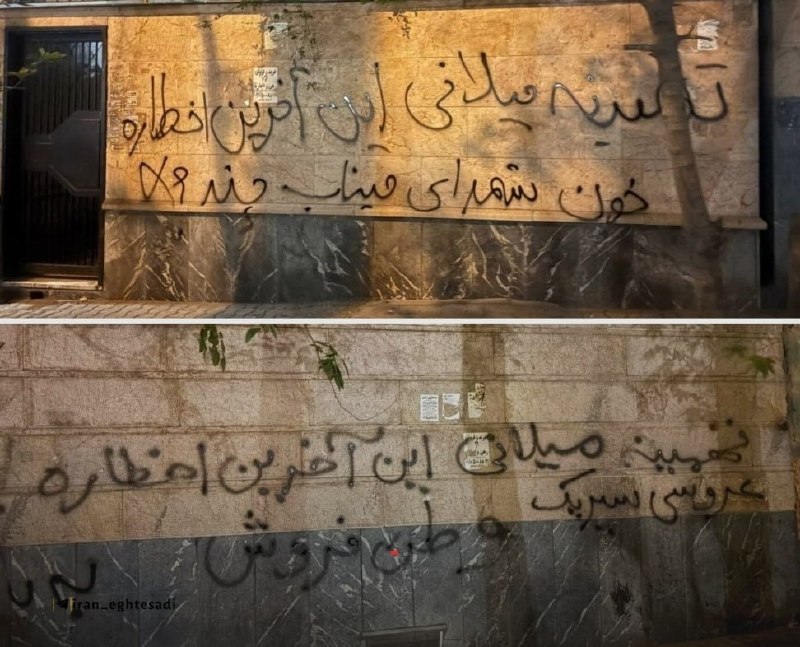 تهمینه میلانی این آخرین اخطاره
خون شهدای میناب چند ؟؟
تهمینه میلانی این آخرین اخطاره
عروسی سیریک
وطن فروش
iran_eghtesadi